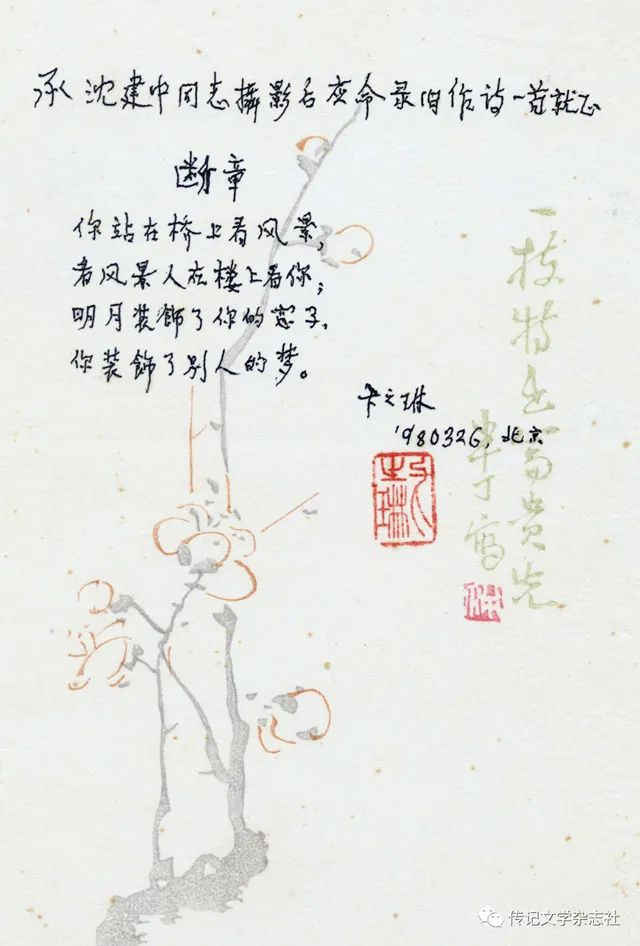 承沈建中同志攝影后应命录旧作诗一首就正
断章
你站在桥上看风景,
看风景人在楼上看你;
明月装饰了你的窗子,
你装饰了别人的梦。
卞之琳
'980326,北京
卞之琳
一枝特出貴先
半丁写
传记文学杂志社